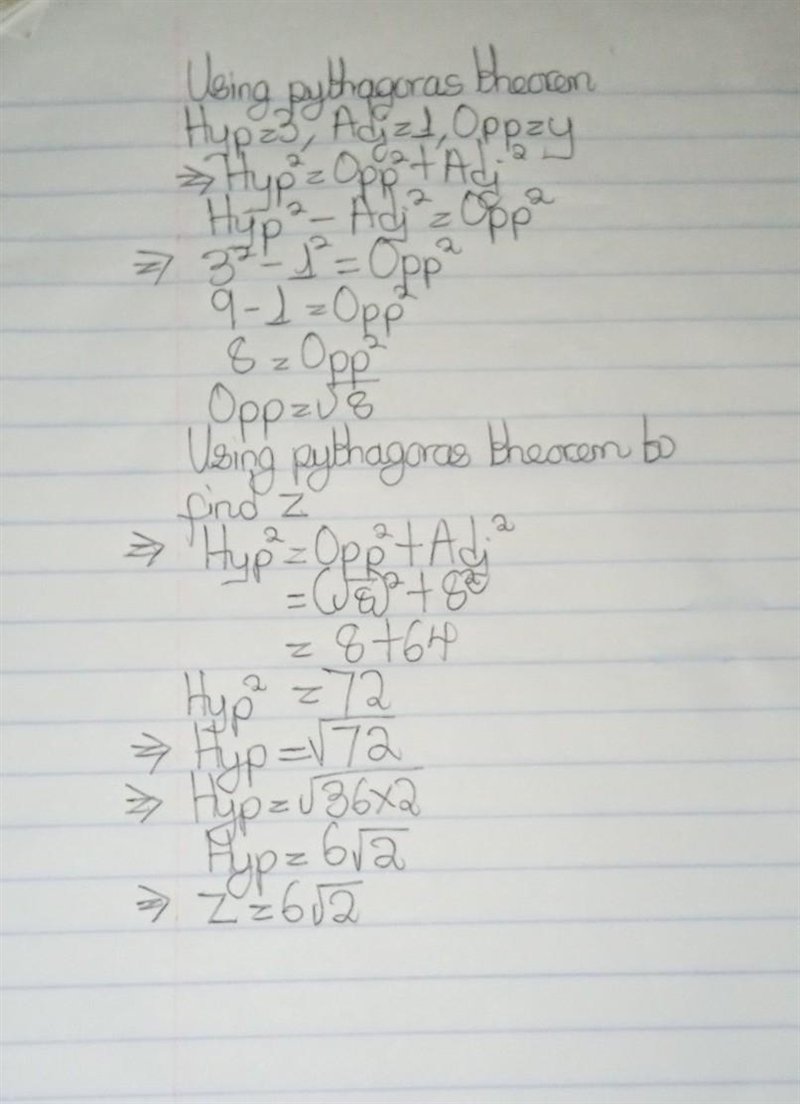 Using pythagoras theorem
Hyp=3, Adj=1, Opp=y
⇒ Hyp² = Opp² + Adj²
Hyp² - Adj² = Opp²
⇒ 3² - 1² = Opp²
9 - 1 = Opp²
8 = Opp²
Opp = √8
Using pythagoras theorem to
find z
⇒ Hyp² = Opp² + Adj²
= (√8)² + 8²
= 8 + 64
Hyp² = 72
⇒ Hyp = √72
⇒ Hyp = √36×2
Hyp = 6√2
⇒ z = 6√2